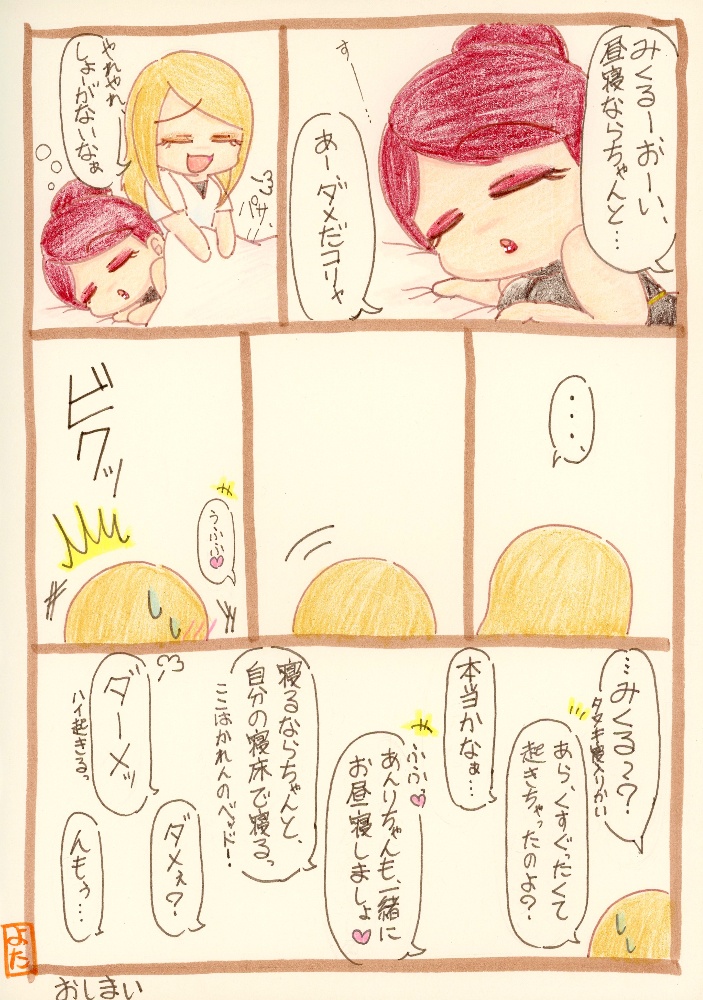 みくるーおーい、
昼寝ならちゃんと…
すー…
あーダメだコリャ
やれやれ、
しょーがないなぁ
パサ、
・・・、
うふふ♥
ビクッ
…みくる〜?
タヌキ寝入りかい
あら、くすぐったくて
起きちゃったのよ?
本当かなぁ…
ふふっ♥
あんりちゃんも、一緒に
お昼寝しましょ♥
寝るならちゃんと、
自分の寝床で寝るっ
ここはかれんのベッド!
ダーメッ
ハイ起きるっ
ダメぇ?
んもぅ…
よた
おしまい